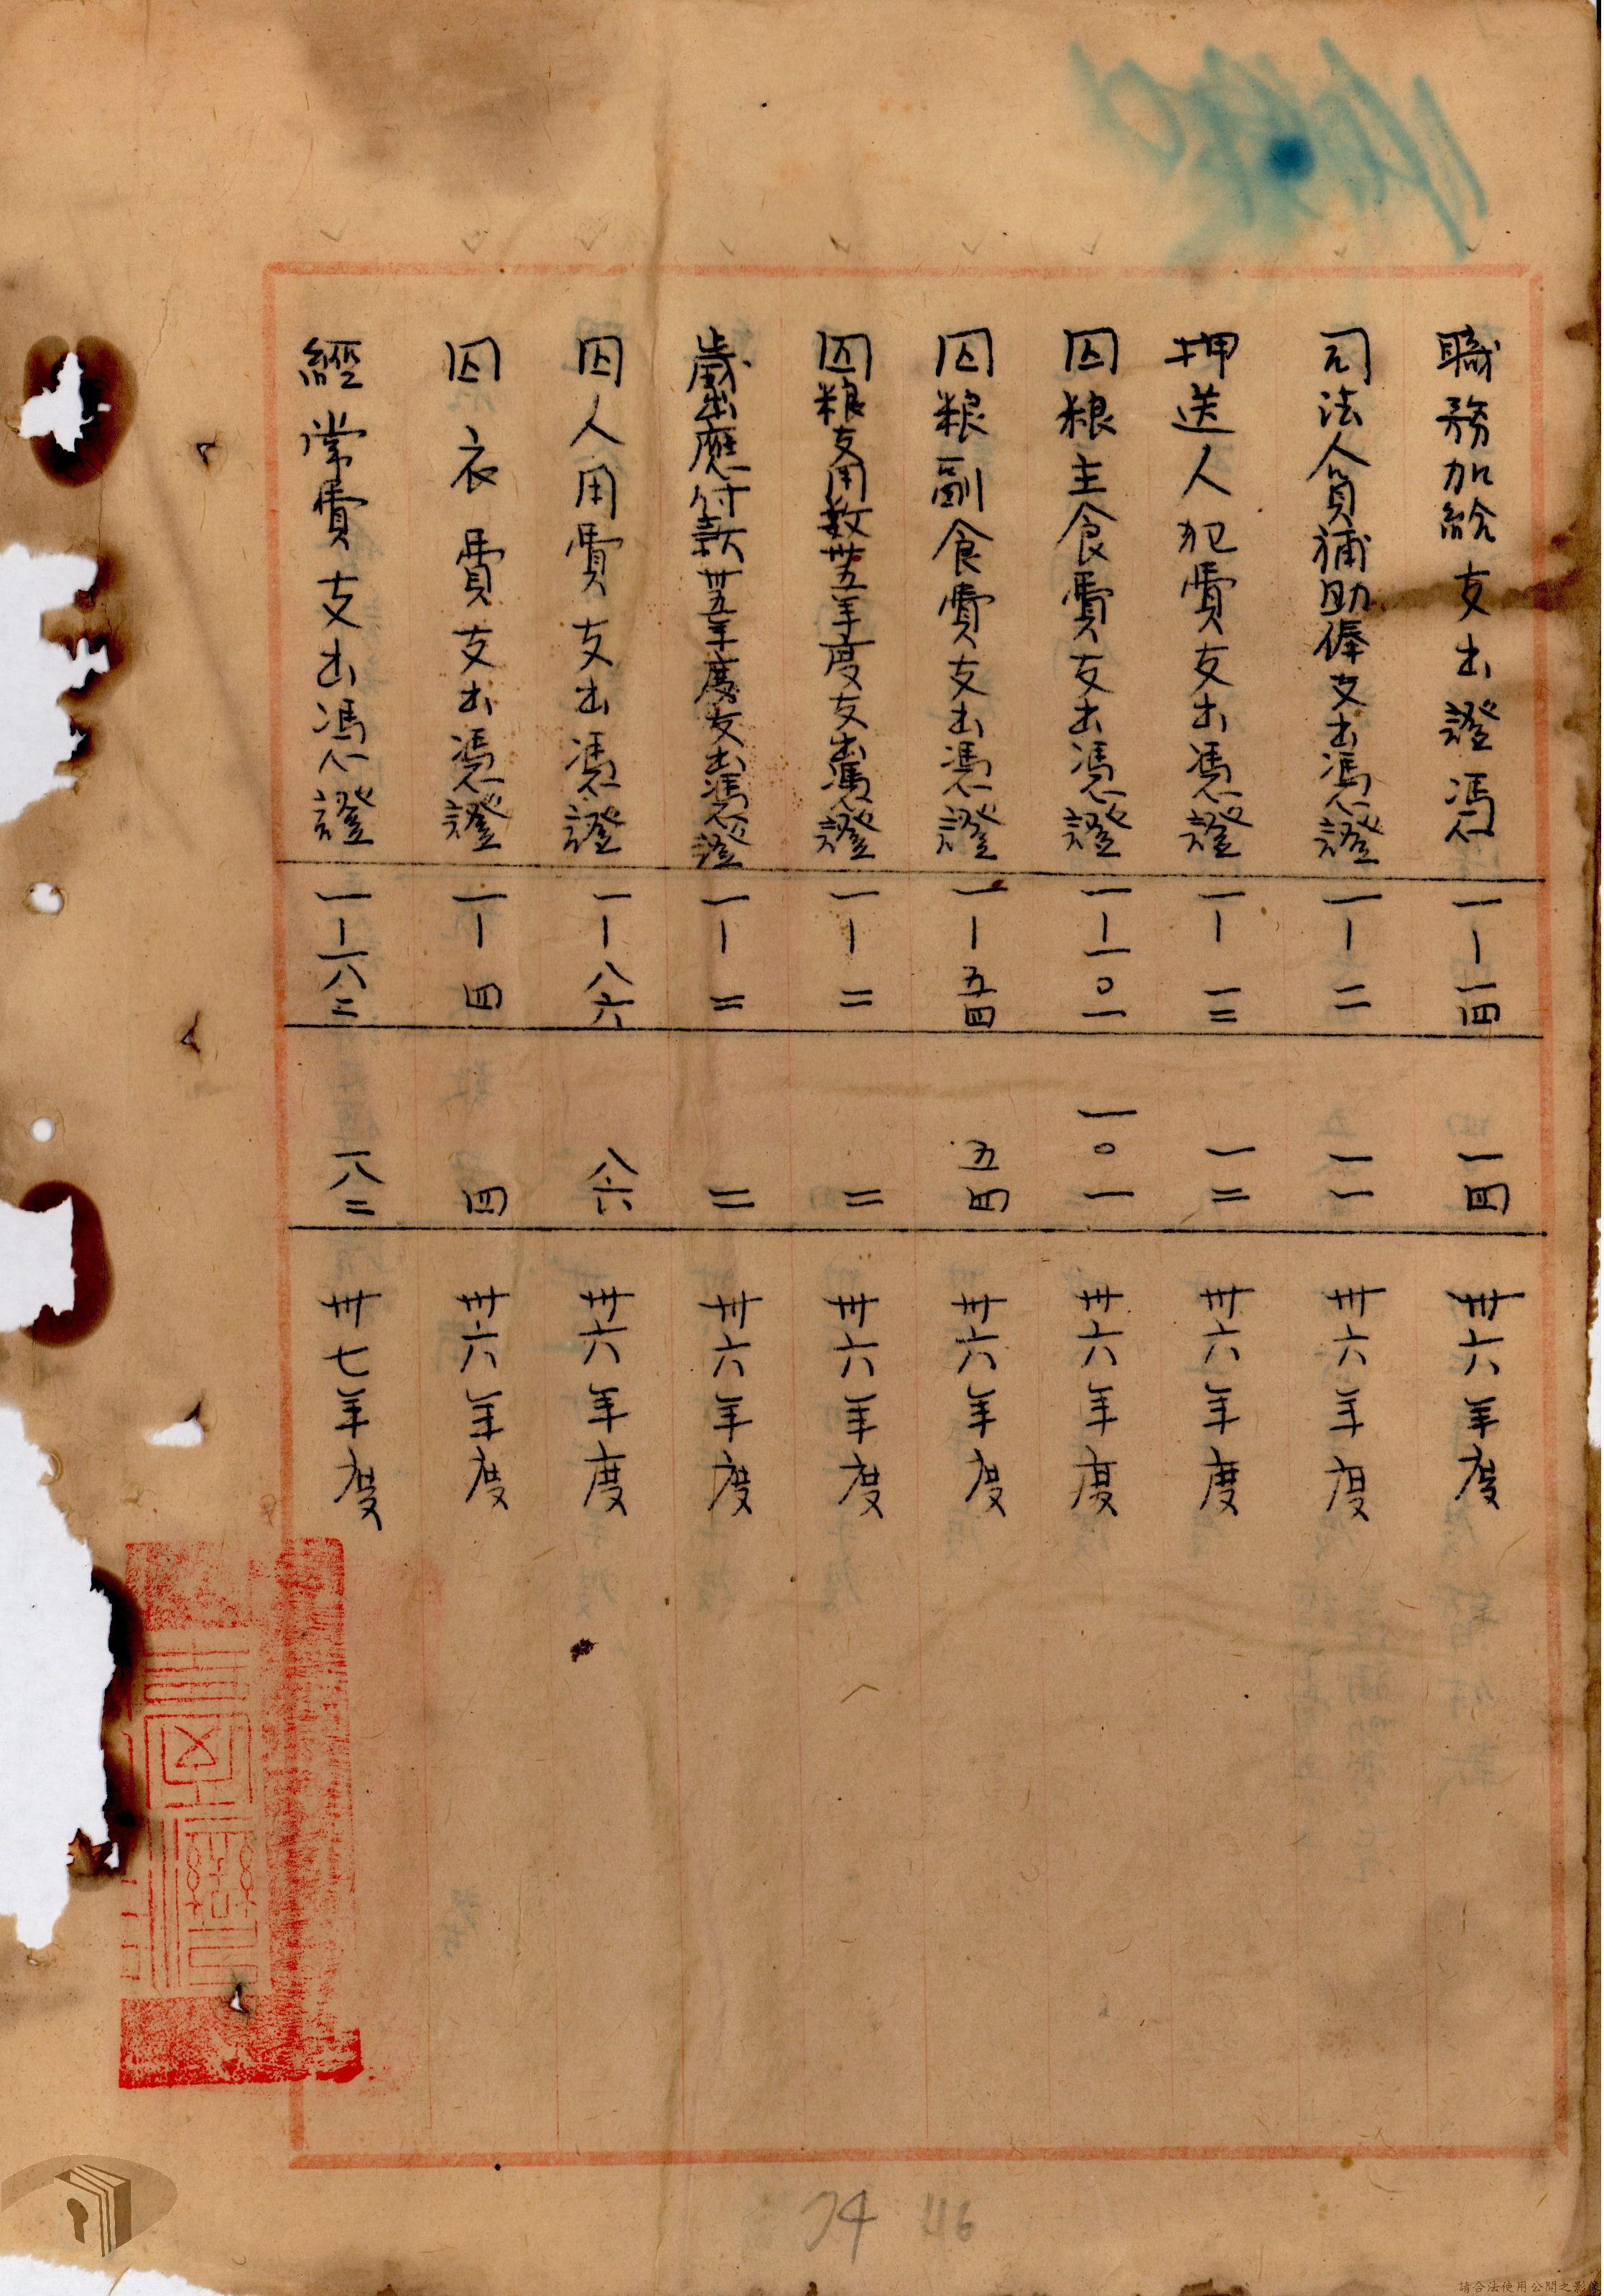 職務加給支出證憑 一－一四 一四 卅六年度
司法人員補助俸支出憑證 一－二 一一 卅六年度
押送人犯費支出憑證 一－一二 一二 卅六年度
囚粮主食費支出憑證 一－一〇一 一〇一 卅六年度
囚粮副食費支出憑證 一－五四 五四 卅六年度
囚粮支用數卅五年度支出憑證 一－二 二 卅六年度
歲出應付款卅五年度支出憑證 一－二 二 卅六年度
囚人用費支出憑證 一－八六 八六 卅六年度
囚衣費支出憑證 一－四 四 卅六年度
經常費支出憑證 一－一八二 一八二 卅七年度
74 46
請合法使用公開之影像